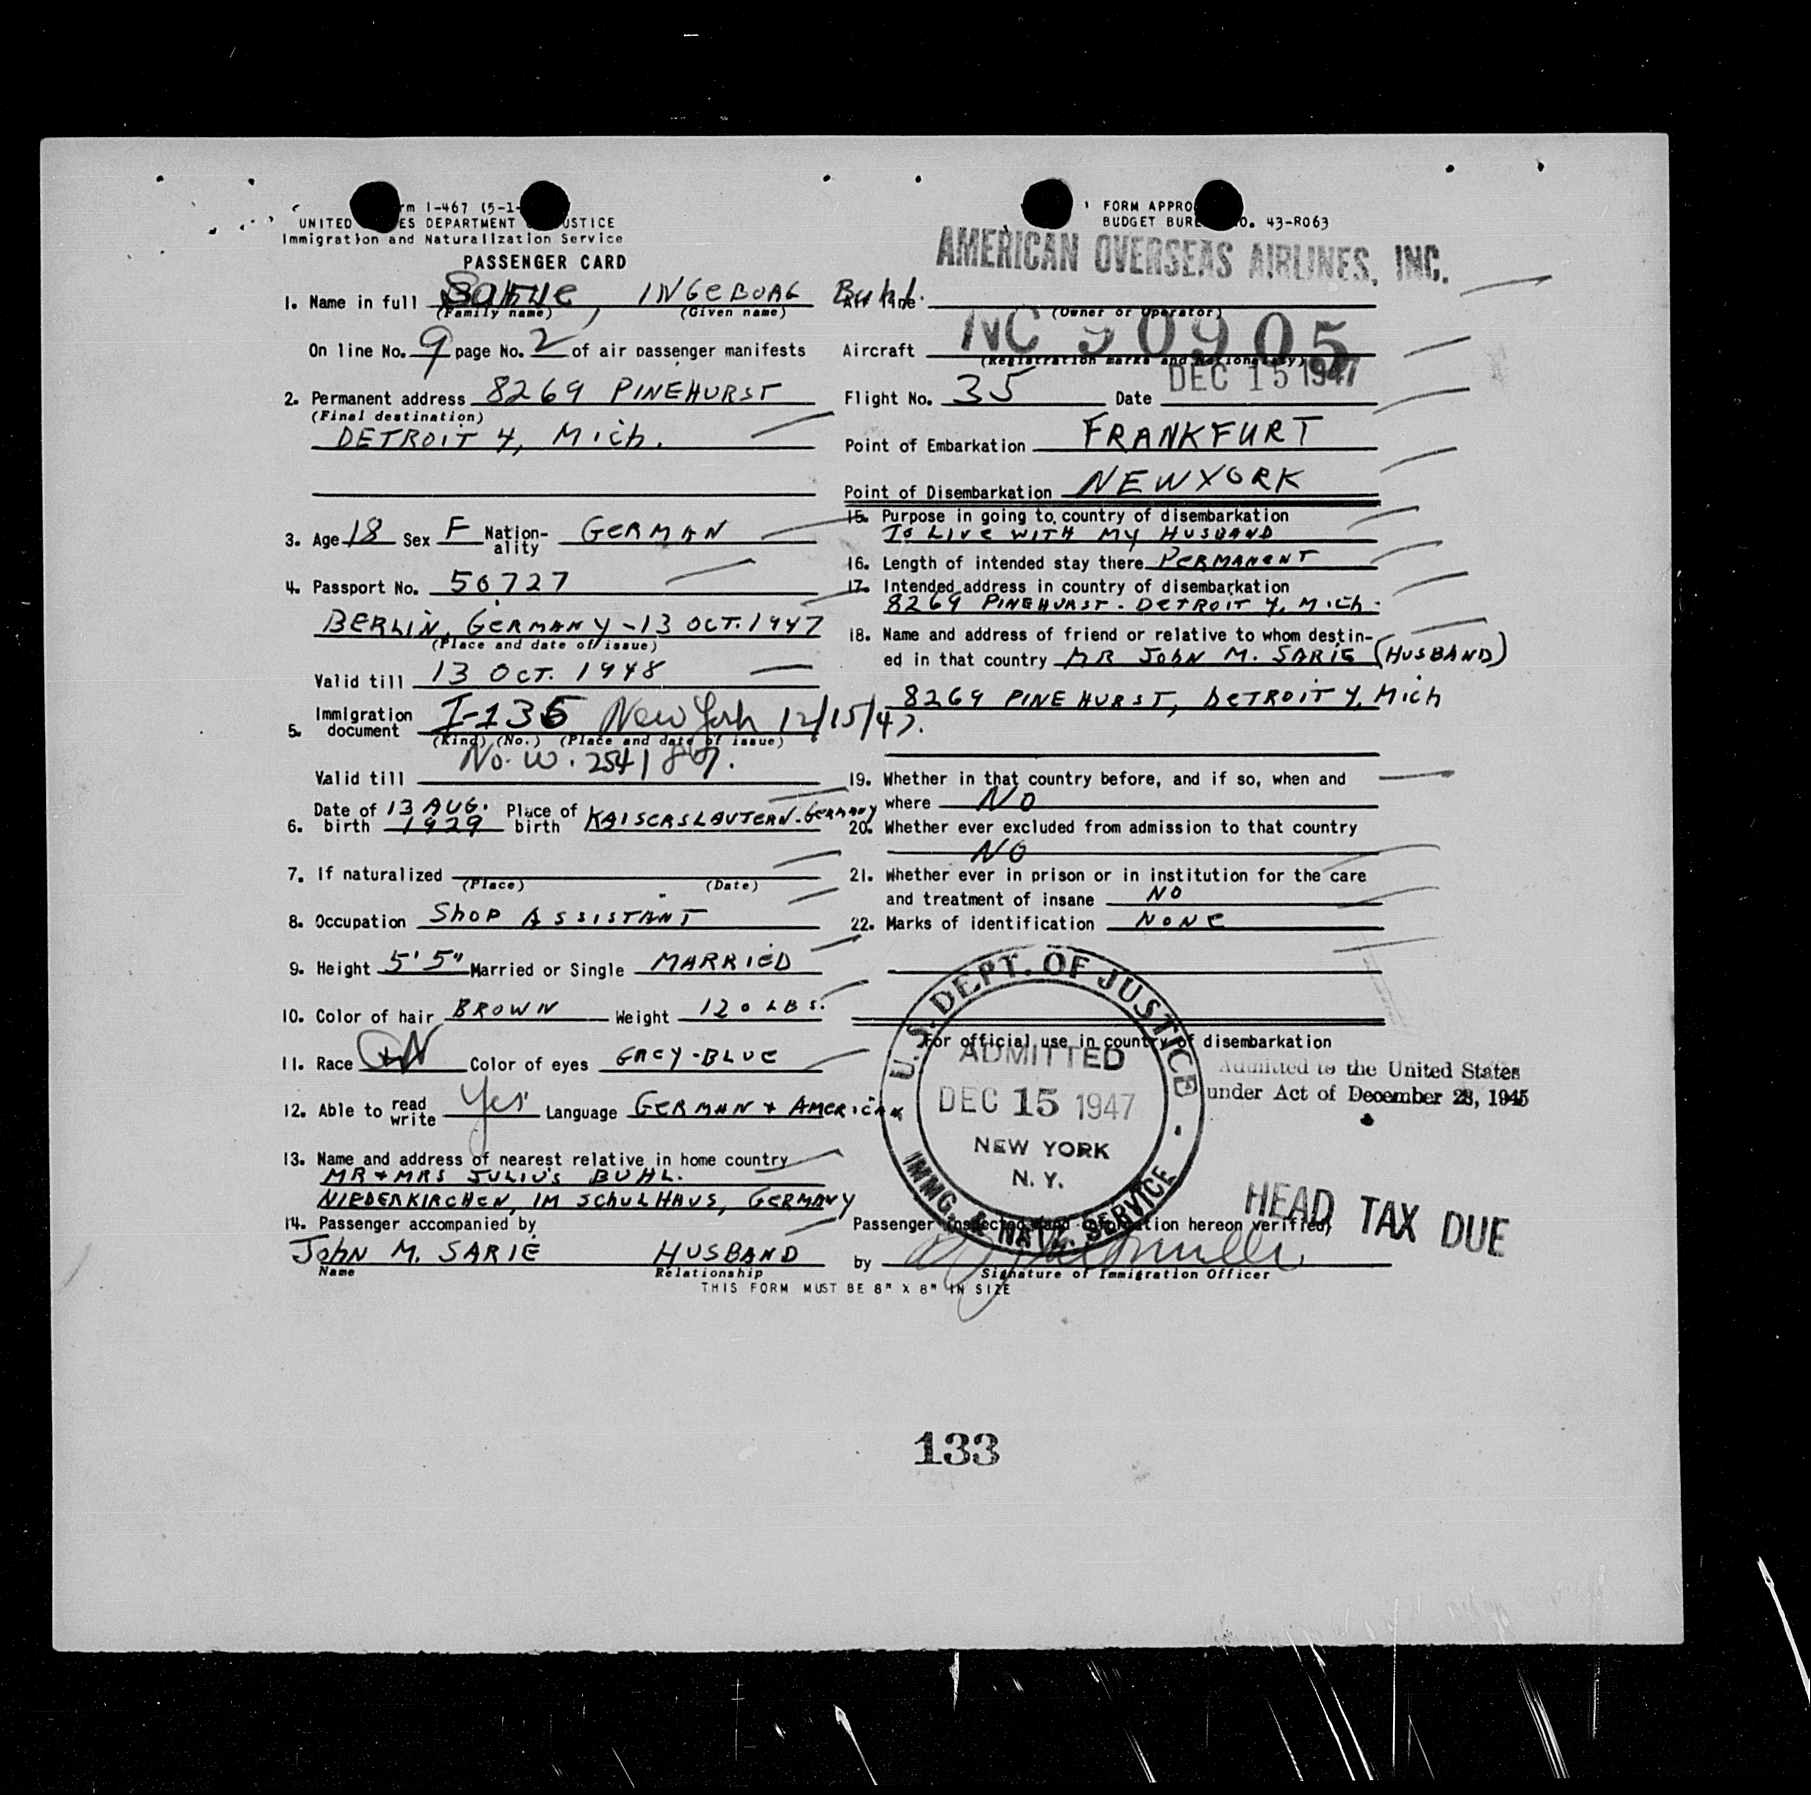 rm I-467 (5-1-
UNITED ES DEPARTMENT USTICE
Immigration and Naturalization Service
PASSENGER CARD
1. Name in full INGEBORG Buhl.
(Family name) (Given name)
On line No. 9 page No. 2 of air passenger manifests
2. Permanent address 8269 PINEHURST
(Final destination)
DETROIT 4, Mich.
3. Age 18 Sex F Nation-ality GERMAN
4. Passport No. 50727
BERLIN, GERMANY - 13 OCT. 1947
(Place and date of issue)
Valid till 13 OCT. 1948
5. Immigration document I-135 New York 12/15/47.
(Kind) (No.) (Place and date of issue)
No. W.
Valid till
6. Date of birth 13 AUG. 1929 Place of birth KAISERSLAUTERN-GERMANY
7. If naturalized
(Place) (Date)
8. Occupation SHOP ASSISTANT
9. Height 5' 5" Married or Single MARRIED
10. Color of hair BROWN Weight 120 LBS.
11. Race Color of eyes GREY-BLUE
12. Able to read write Yes Language GERMAN + AMERICAN
13. Name and address of nearest relative in home country
MR + MRS JULIUS BUHL.
NIEDERKIRCHEN, IM SCHULHAUS, GERMANY
14. Passenger accompanied by
JOHN M. SARIE HUSBAND
Name Relationship
THIS FORM MUST BE 8" X 8" IN SIZE
FORM APPRO
BUDGET BURE O. 43-R063
AMERICAN OVERSEAS AIRLINES, INC.
Air line
(Owner or Operator)
Aircraft NC 90905
(Registration marks and Nationality)
Flight No. 35 Date DEC 15 1947
Point of Embarkation FRANKFURT
Point of Disembarkation NEW YORK
15. Purpose in going to country of disembarkation
TO LIVE WITH MY HUSBAND
16. Length of intended stay there PERMANENT
17. Intended address in country of disembarkation
8269 PINEHURST - DETROIT 4, MICH.
18. Name and address of friend or relative to whom destin-
ed in that country MR JOHN M. SARIE (HUSBAND)
8269 PINEHURST, DETROIT 4, Mich
19. Whether in that country before, and if so, when and
where NO
20. Whether ever excluded from admission to that country
NO
21. Whether ever in prison or in institution for the care
and treatment of insane NO
22. Marks of identification NONE
For official use in country of disembarkation
U.S. DEPT. OF JUSTICE
ADMITTED
DEC 15 1947
NEW YORK
N. Y.
IMMG. & NATZ. SERVICE
Admitted to the United States
under Act of December 28, 1945
HEAD TAX DUE
Passenger inspected and information hereon verified,
by
Signature of Immigration Officer
133